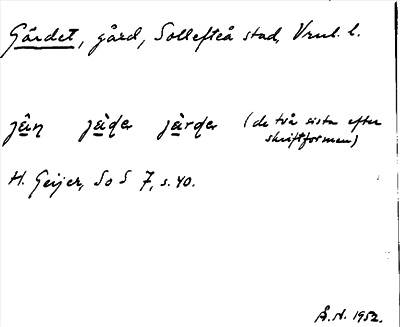 Gärdet, gård, Sollefteå stad, Vrml. l.
jän jäder järder (de två sista efter
skriftformen)
H. Geijer, SoS 7, s. 40.
Å.N. 1952.